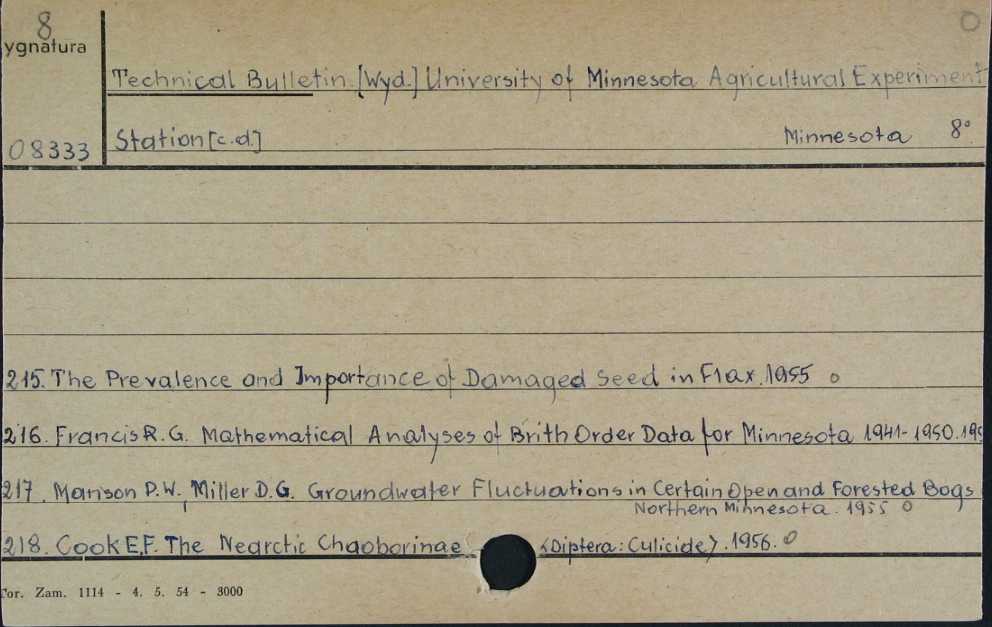 8
ygnatura
Technical Bulletin. [Wyd.] University of Minnesota Agricultural Experiment
Station [c.d.] Minnesota 8°
08333
215. The Prevalence and Importance of Damaged Seed in Flax. 1955 o
216. Francis R. G. Mathematical Analyses of Brith Order Data for Minnesota 1941-1950. 195
217. Manson P.W., Miller D.G. Groundwater Fluctuations in Certain Open and Forested Bogs
Northern Minnesota. 1955 o
218. Cook E.F. The Nearctic Chaoborinae <Diptera: Culicide>. 1956. o
Tor. Zam. 1114 - 4. 5. 54 - 3000